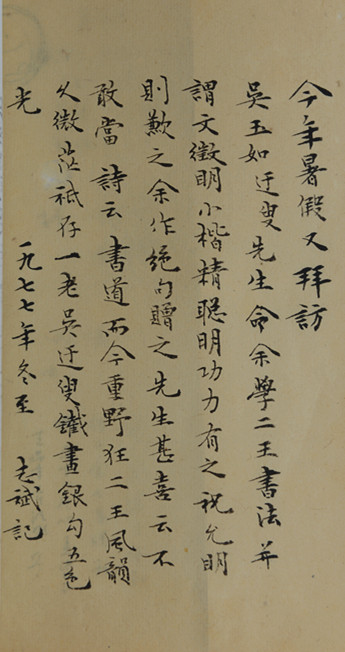 今年暑假又拜訪
吳玉如迂叟先生命余學二王書法并
謂文徵明小楷精聰明功力有之祝允明
則歉之余作絕句贈之先生甚喜云不
敢當 詩云 書道而今重野狂二王風韻
久微茫祗存一老吳迂叟鐵畫銀勾五色
光 一九七七年冬至 志斌記